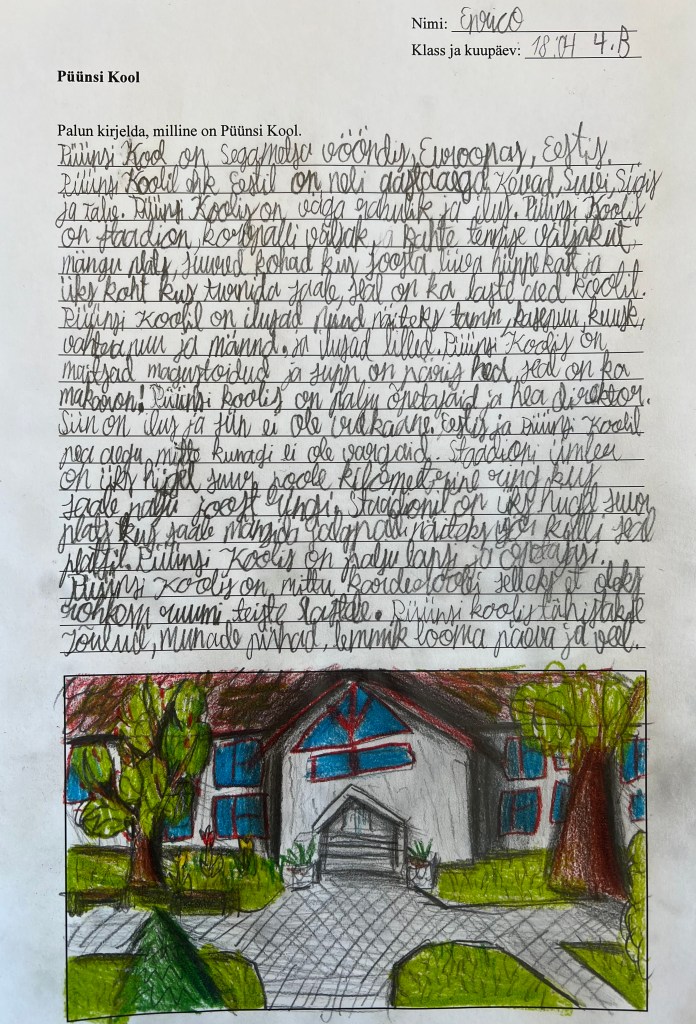 Nimi: Enrico
Klass ja kuupäev: 18.04 4.B
Püünsi Kool
Palun kirjelda, milline on Püünsi Kool.
Püünsi Kool on Segametsa vööndis, Euroopas, Eestis.
Püünsi Koolil ehk Eestil on neli aastaaega, Kevad, Suvi, Sügis
ja Talv. Püünsi Koolis on väga rahulik ja ilus. Püünsi Koolis
on staadion, korvpalli väljak, ja kahte tennise väljakut,
mängu plats, suured kohad kus joosta liiva hüppe kast ja
üks koht kus turnida saate, seal on ka laste aed koolil.
Püünsi Koolil on ilusad puud näiteks tamm, kasepuu, kuusk,
vahtrapuu ja männd. ja ilusad lilled. Püünsi Koolis on
maitsad magustoidud ja supp on päris hea, seal on ka
makaron! Püünsi koolis on palju õpetajaid ja hea direktor.
Siin on ilus ja siin ei ole vulkaane. Eestis ja Püünsi Koolil
pea aegu mitte kunagi ei ole vargaid. Staadioni ümber
on üks higel suur poole kilomeetrine ring kus
saate palju joost ringi. Staadionil on üks suur
plats kus saate mängida jalgpalli näiteks või kulli seal
platsil. Püünsi Koolis on palju lapsi ja õpetajaid.
Püünsi Koolis on mittu selleks et oleks
rohkem ruumi teiste lastele. Püünsi koolis tähistatakse
Jõulud, munade pühad, lemmik looma päeva ja veel.